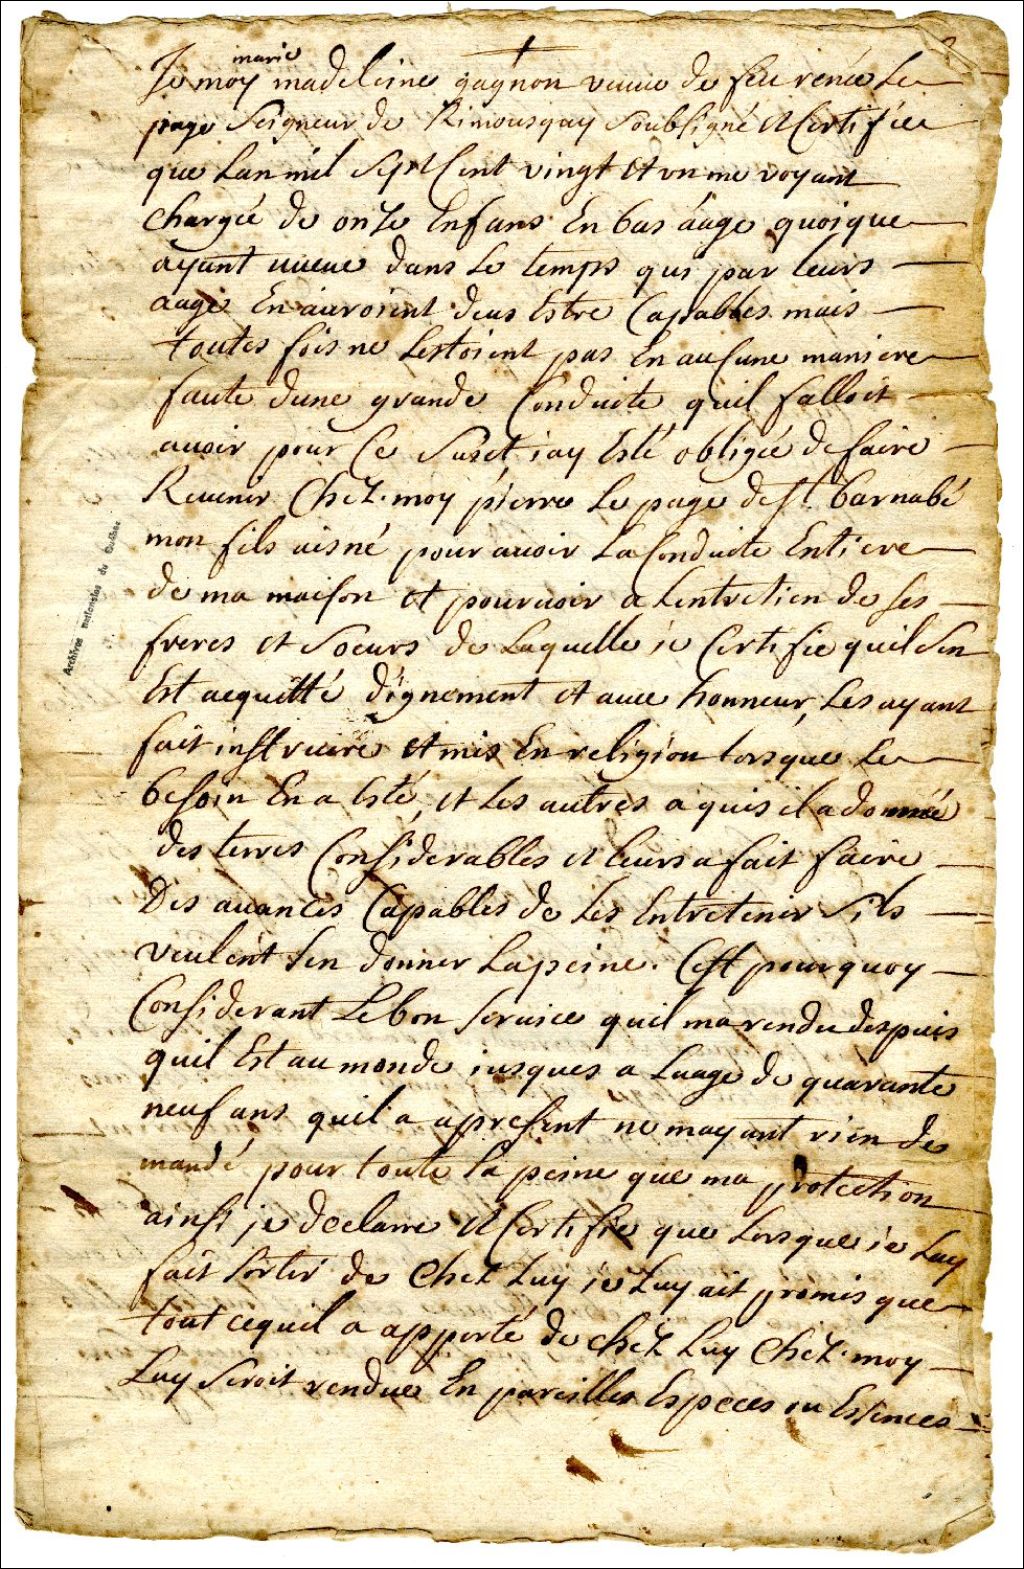 marie
Je moy madeleine gagnon veuue de feu renée Le
page Seigneur de Rimousquy Soubsigné et Certifiée
que Lan mil Sept Cent vingt et un me voyant
Chargée de onze Enfans En bas áage quoique
ayant uieue dans Le temps qui par leurs
aage En auroient deus Estre Capables mais
toutes fois ne Lestoient pas En aucune maniere
faute dune grande Conduite quil falloit
auoir pour Ce Sujet jay Esté obligée de faire
Reuenir Chez moy pierre Le page de St barnabé
mon fils aisné pour auoir La Conduite Entiere
de ma maison et pouruoir a Lentretien de ses
freres et Soeurs de Laquelle je Certifie quil Sen
Est acquitté dignement et auec honneur, Les ayant
fait instruire et mis En religion lorsque Le
besoin En a Esté, et Les autres a quis il a donnée
des terres Considerables et leurs a fait faire
Des auances Capables de Les Entretenir Sils
veulent sen donner La peine. Cest pourquoy
Considerant Le bon seruice quil ma rendu despuis
quil Est au monde jusques a Laage de quarante
neuf ans quil a apresent ne mayant rien de
mandé pour toute La peine que ma protection
ainsi je declare et Certifie que Lorsque je Luy
fait sortir de Chez Luy je Luy ait promis que
tout cequil a apporté de chez Luy Chez moy
Luy Seroit rendue En pareilles Especes ou Essences
Archives nationales du Québec